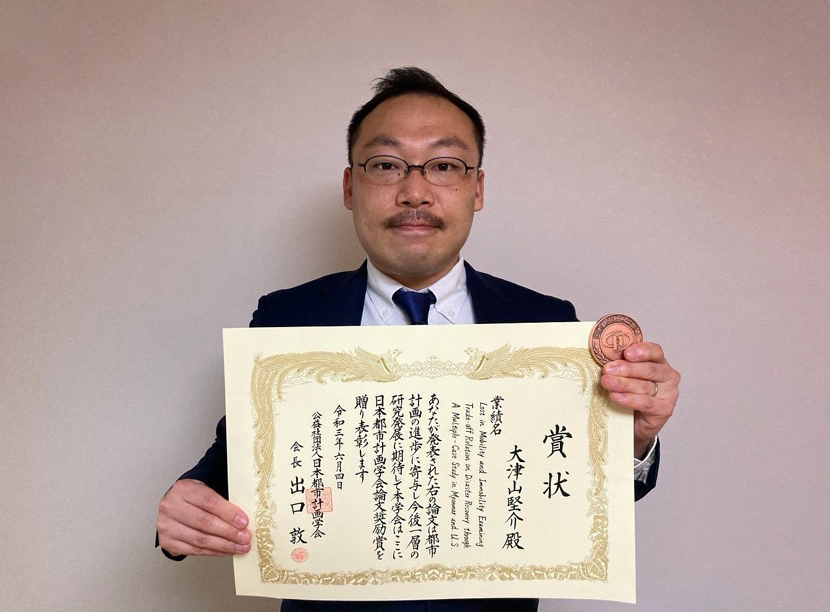 賞状
大津山堅介殿
業績名
Lost in Mobility and Immobility Examining
Trade-off Relation on Disaster Recovery through
A Multiple-Case Study in Myanmar and U.S.
あなたが発表された右の論文は都市
計画の進歩に寄与し今後一層の
研究発展に期待して本学会はここに
日本都市計画学会論文奨励賞を
贈り表彰します
令和三年六月四日
公益社団法人日本都市計画学会
会長 出口敦